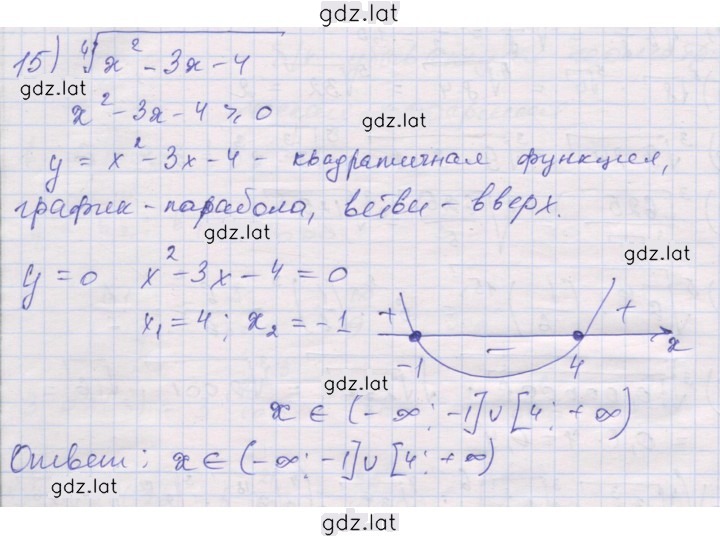 gdz.lat
15) ∜(x² - 3x - 4)
gdz.lat
x² - 3x - 4 ⩾ 0
gdz.lat
y = x² - 3x - 4 - квадратичная функция,
график - парабола, ветви - вверх.
gdz.lat
gdz.lat
y = 0 x² - 3x - 4 = 0
x₁ = 4; x₂ = -1
+ - + x
-1 4
gdz.lat
x ∈ (-∞; -1] ∪ [4; +∞)
Ответ: x ∈ (-∞; -1] ∪ [4; +∞)
gdz.lat
gdz.lat